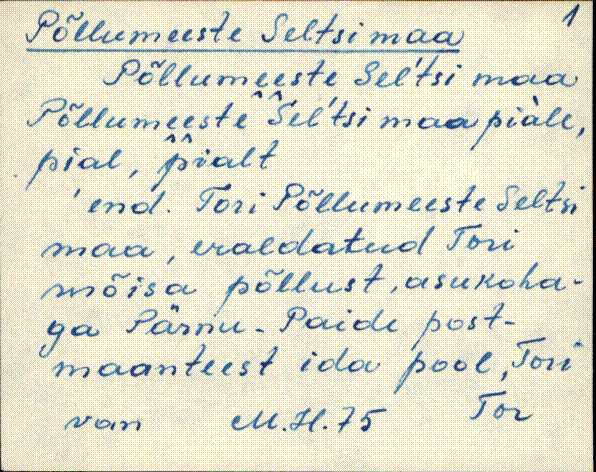 1
Põllumeeste Seltsi maa
Põllumeeste Sel'tsi maa
Põllumeeste Sel'tsi maa piàle,
pial, pialt
'end. Tori Põllumeeste Seltsi
maa, eraldatud Tori
mõisa põllust, asukoha-
ga Pärnu-Paide post-
maanteest ida pool, Tori
van M.H.75 Tor